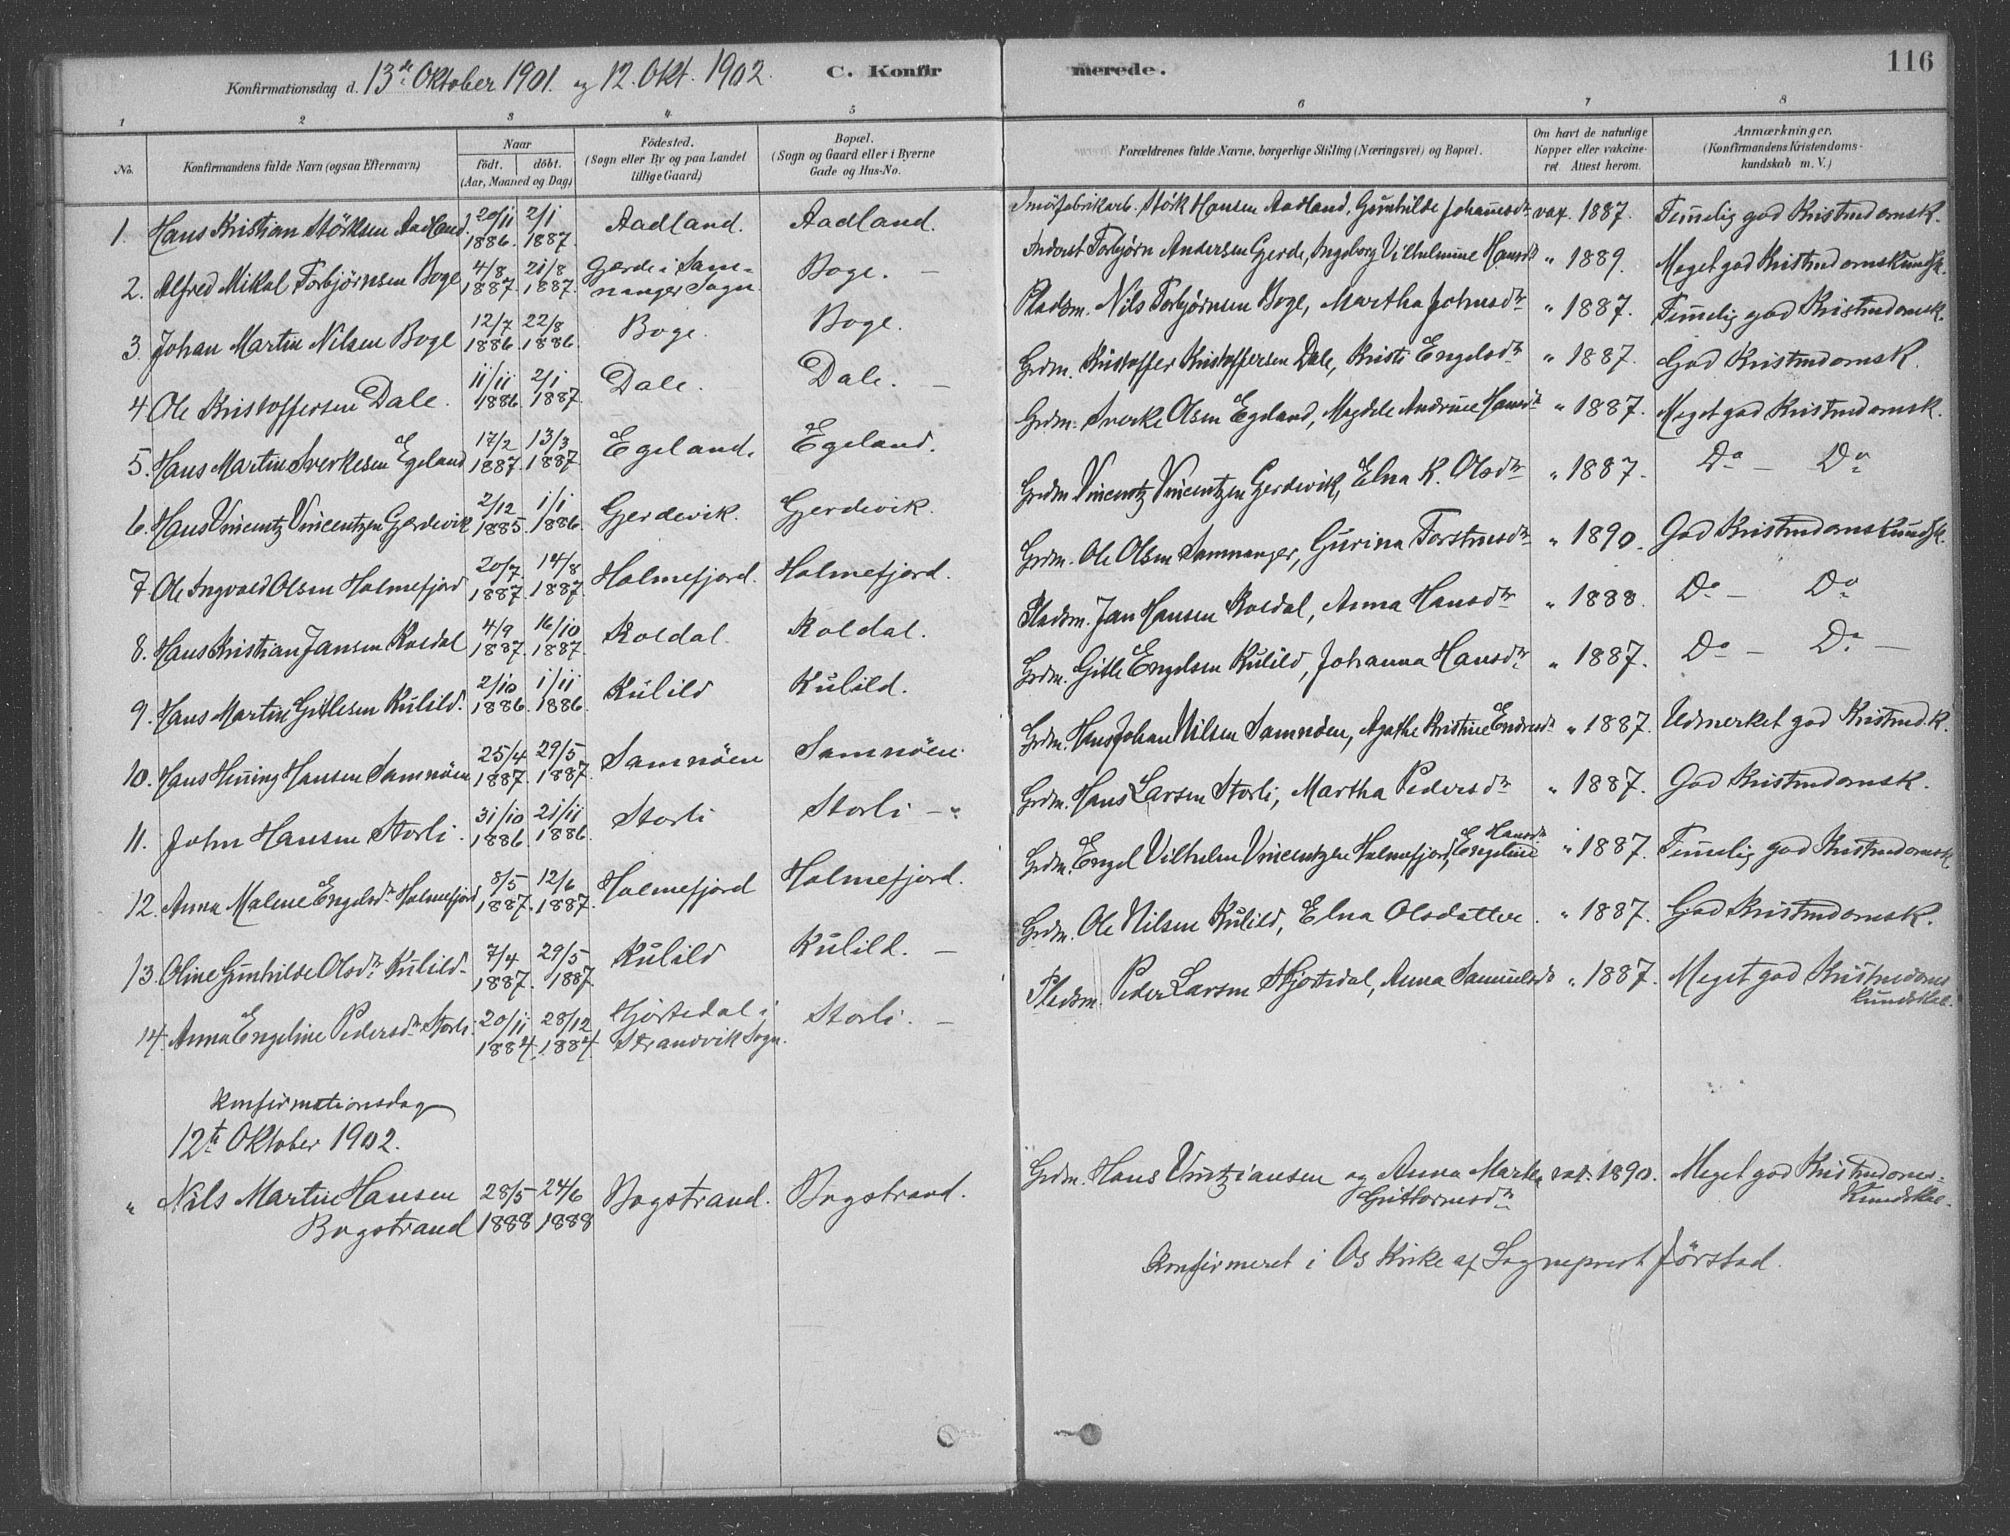 Konfirmationsdag d. 13de Oktober 1901. og 12. Okt. 1902. C. Konfirmerede. 116
1 2 3 4 5 6 7 8
No. Konfirmandens fulde Navn (ogsaa Efternavn) Naar födt. döbt. (Aar, Maaned og Dag) Födested. (Sogn eller By og paa Landet tillige Gaard) Bopæl. (Sogn og Gaard eller i Byerne Gade og Hus-No. Forældrenes fulde Navne, borgerlige Stilling (Næringsvei) og Bopæl. Om havt de naturlige Kopper eller vakcineret. Attest herom. Anmærkninger. (Konfirmandens Kristendomskundskab m. V.)
1. Hans Kristian Störksen Aadland. 20/11 1886. 2/1 1887. Aadland. Aadland. Störk Hansen Aadland, Gunhilde Johannesdr vax. 1887. Temmelig god Kristendomsk.
2. Alfred Mikal Torbjørnsen Boge 4/8 1887. 21/8 1887. Gjerde i Samnanger Sogn. Boge. — Inderst Torbjørn Andersen Gerde, Ingeborg Vilhelmine Hansdr " 1889. Meget god Kristendomskundsk.
3. Johan Martin Nilsen Boge 12/7 1886. 22/8 1886. Boge. Boge. Pladsm. Nils Torbjørnsen Boge, Martha Johnsdr " 1887. Temmelig god Kristendomsk.
4. Ole Kristoffersen Dale. 11/11 1886. 2/1 1887. Dale. Dale. — Grdm. Kristoffer Kristoffersen Dale, Kristi Engelsdr " 1887. God Kristendomsk.
5. Hans Martin Sverkesen Egeland 17/2 1887. 13/3 1887. Egeland. Egeland. Grdm. Sverke Olsen Egeland, Magdele Andrine Hansdr " 1887. Meget god Kristendomsk.
6. Hans Vincentz Vincentzen Gjerdevik 2/12 1885. 1/1 1886. Gjerdevik. Gjerdevik. Grdm. Vincentz Vincentzen Gerdevik, Elna K. Olsdr " 1887. Do — Do
7. Ole Ingvald Olsen Holmefjord 20/7. 1887. 14/8 1887. Holmefjord. Holmefjord. Grdm. Ole Olsen Samnanger, Gurina Torstensdr " 1890. God Kristendomskundsk.
8. Hans Kristian Jansen Koldal 4/9 1887. 16/10 1887. Koldal. Koldal. Pladsm. Jan Hansen Koldal, Anna Hansdr " 1888. Do — Do
9. Hans Martin Gitlesen Kulild. 2/10 1886. 1/11 1886. Kulild Kulild. Grdm. Gitle Engelsen Kulild, Johanna Hansdr " 1887. Do — Do —
10. Hans Henning Hansen Samnöen 25/4 1887. 29/5 1887. Samnöen Samnöen. Grdm. Hans Johan Nilsen Samnöen, Agathe Kristine Endresdr " 1887. Udmerket god Kristend.k.
11. John Hansen Storli. 31/10 1886. 21/11 1886. Storli Storli — " Grdm. Hans Larsen Storli, Martha Pedersdr " 1887. God Kristendomsk.
12. Anna Malene Engelsdr Holmefjord 8/5 1887. 12/6 1887. Holmefjord Holmefjord. Grdm. Engel Vilhelm Vincentzen Holmefjord, Engeline Hansdr " 1887. Temmelig god Kristendomsk.
13. Oline Gunhilde Olsdr Kulild. 7/4 1887. 29/5 1887. Kulild Kulild. — Grdm. Ole Nilsen Kulild, Elna Olsdatter. " 1887. God Kristendomsk.
14. Anna Engeline Pedersdr Storli. 20/11 1884. 28/12 1884. Hjortedal i Strandvik Sogn. Storli. — Pladsm. Peder Larsen Hjortedal, Anna Samuelsdr " 1887. Meget god Kristendomskundskab.
Konfirmationsdag
12te Oktober 1902.
" Nils Martin Hansen Bogstrand 28/5 1888 24/6 1888 Bogstrand. Bogstrand. Grdm. Hans og Anna Marta Guttormsdr vax. 1890. Meget god Kristendomskundskab.
Konfirmeret i Os Kirke af Sogneprest Jörstad.